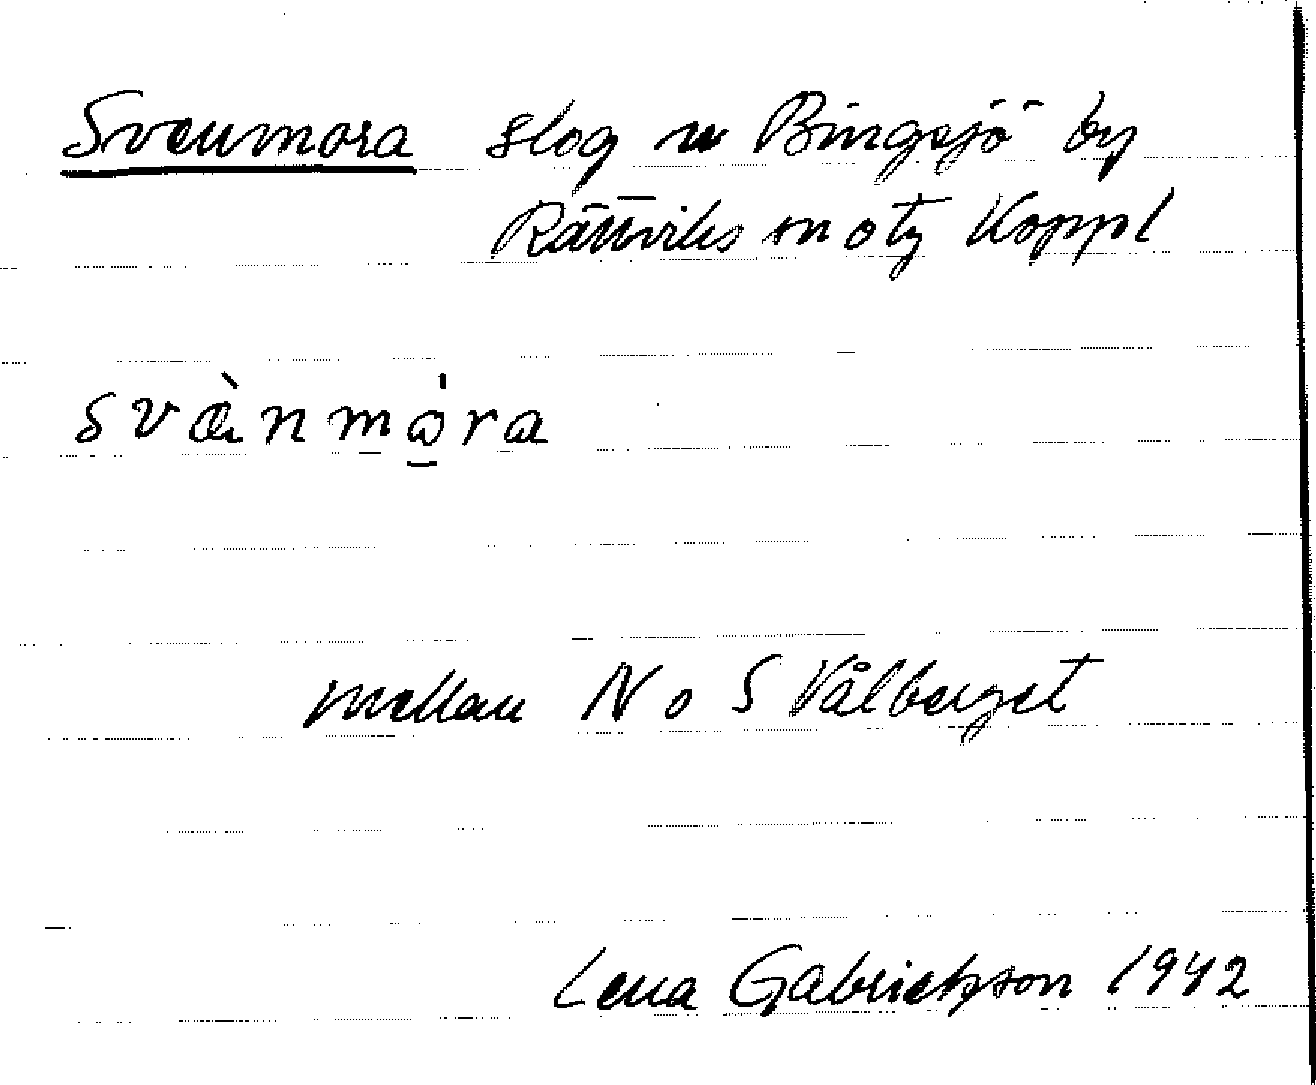 Svenmora slog u Bingsjö by
Rättviks sn o tg Koppl
svæ̀nmὼ̣ra
mellan N o S Vålberget
Lena Gabrielsson 1942